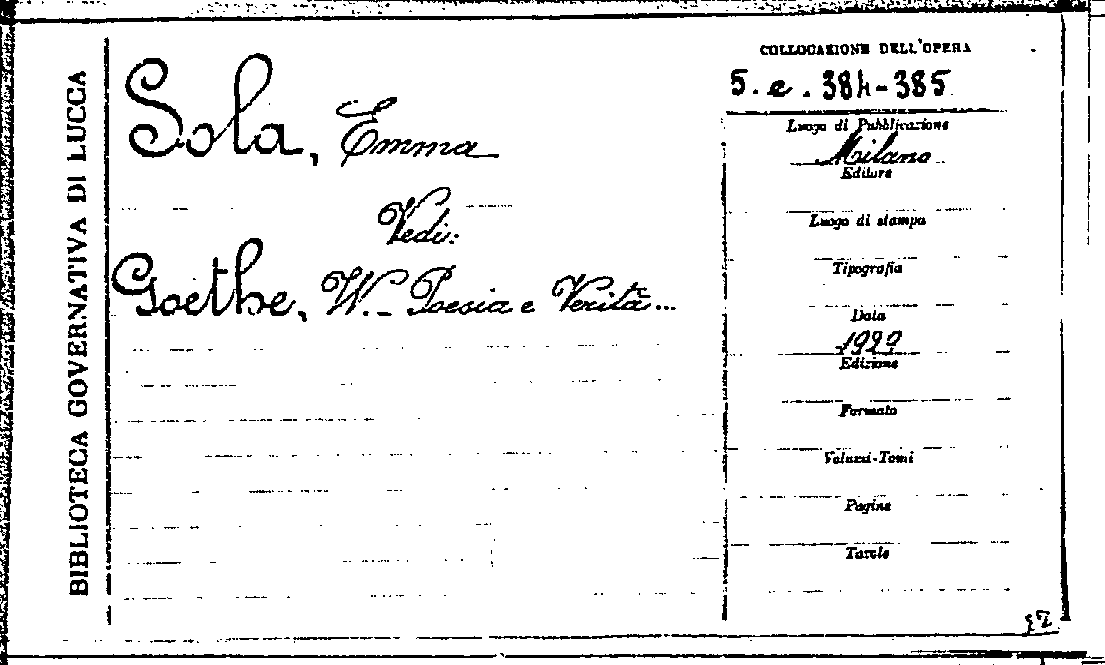 BIBLIOTECA GOVERNATIVA DI LUCCA
Sola, Emma
Vedi:
Goethe, W. - Poesia e Verità...
COLLOCAZIONE DELL'OPERA
5. e. 384-385
Luogo di Pubblicazione
Milano
Editore
Luogo di stampa
Tipografia
Data
1929
Edizione
Formato
Volumi-Tomi
Pagine
Tavole